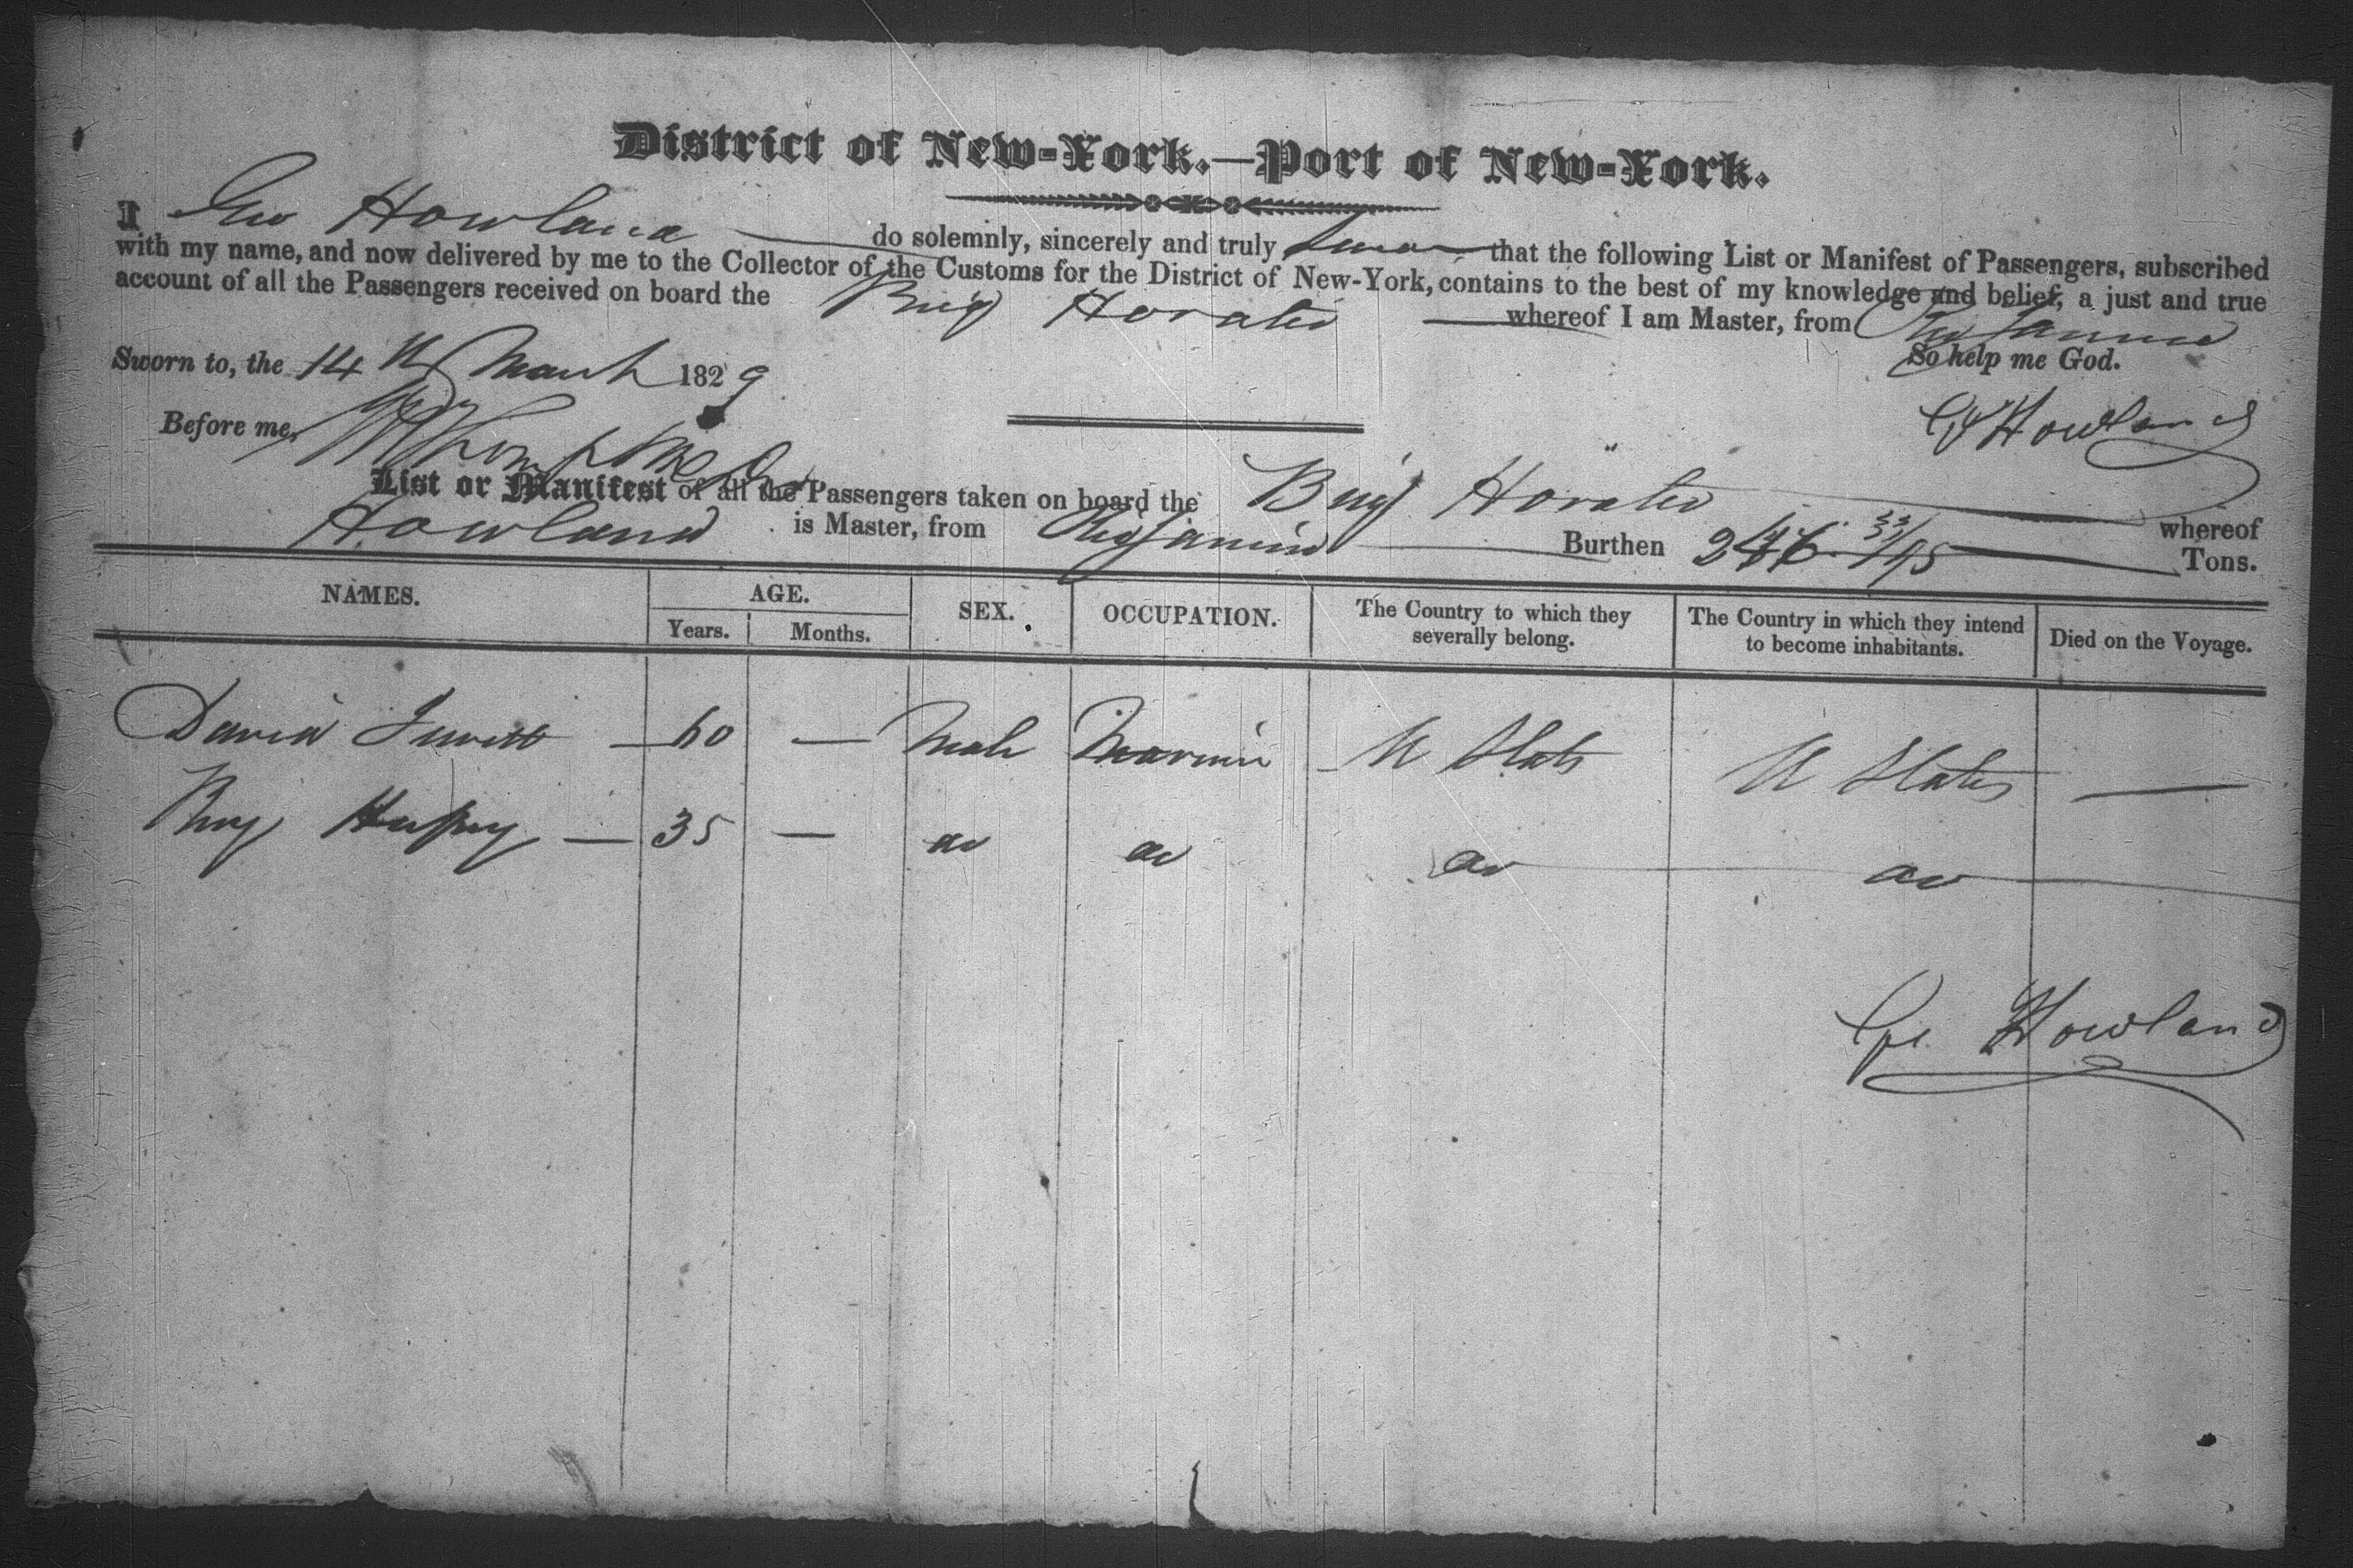 District of New-York.—Port of New-York.
I Geo Howland do solemnly, sincerely and truly swear that the following List or Manifest of Passengers, subscribed
with my name, and now delivered by me to the Collector of the Customs for the District of New-York, contains to the best of my knowledge and belief, a just and true
account of all the Passengers received on board the Brig Horatio whereof I am Master, from Rio Janeiro
Sworn to, the 14th March 1829 So help me God.
Before me, G Howland
List or Manifest of all the Passengers taken on board the Brig Horatio whereof
Howland is Master, from Rio Janeiro Burthen Tons.
NAMES. AGE. SEX. OCCUPATION. The Country to which they severally belong. The Country in which they intend to become inhabitants. Died on the Voyage.
Years. Months.
David Jewett — 60 — Male Marine U States U States —
Benj Hussey — 35 — do do do do
Geo Howland